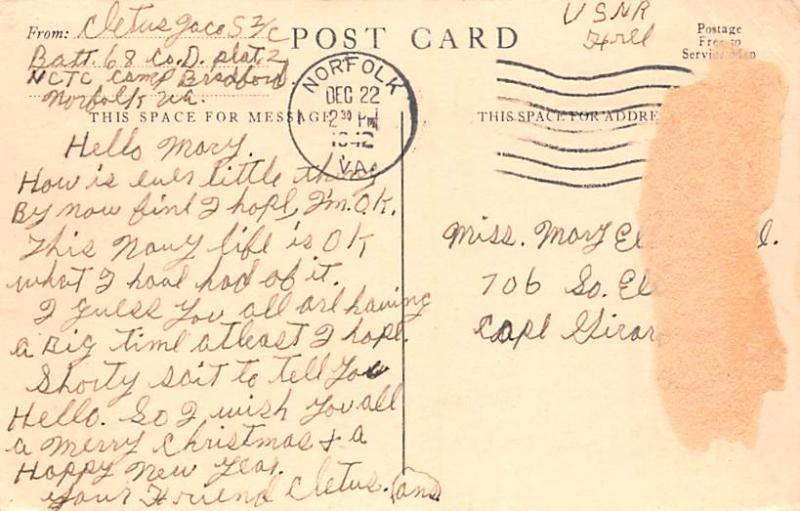 From: Cletus Jaco S 2/C
Batt. 68 Co. D. plat. 2
NCTC Camp Bradford
Norfolk Va.
POST CARD
USNR
Free
Postage
Free to
Service Man
NORFOLK
DEC 22
2 30 PM
1942
VA.
THIS SPACE FOR MESSAGE
THIS SPACE FOR ADDRE
Hello Mary.
How is ever little thing
By now fine I hope, I'm O.K.
This Navy life is OK
what I have had of it.
I guess you all are having
a Big time atleast I hope.
Shorty sait to tell you
Hello. So I wish you all
a Merry Christmas & a
Happy New Year.
your Friend Cletus. (ans
Miss. Mary El
706 So. El
Cape Girar